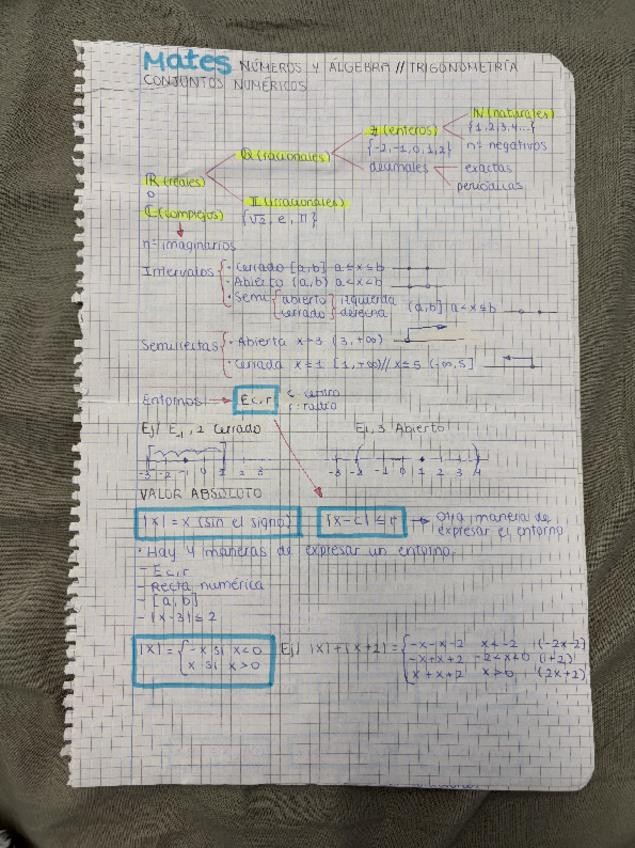 Mates NÚMEROS Y ÁLGEBRA // TRIGONOMETRÍA
CONJUNTOS NUMÉRICOS
ℕ (naturales)
{1,2,3,4...}
ℤ (enteros)
{-2,-1,0,1,2}
nº negativos
ℚ (racionales)
decimales
exactas
periódicas
ℝ (reales)
o
ℂ (complejos)
𝕀 (irracionales)
{√2, e, π}
nº imaginarios
Intervalos
· Cerrado [a,b] a≤x≤b
· Abierto (a,b) a<x<b
· Semi abierto izquierda (a,b] a<x≤b
cerrado derecha
Semirrectas
· Abierta x>3 (3,+∞)
· Cerrada x≥1 [1,+∞) // x≤5 (-∞,5]
Entornos → Ec,r c-centro
r-radio
Ej/ E-1,2 Cerrado E1,3 Abierto
-3 -2 -1 0 1 2 3
-3 -2 -1 0 1 2 3 4
VALOR ABSOLUTO
|x| = x (sin el signo) |x-c| ≤ r → otra manera de
expresar el entorno
· Hay 4 maneras de expresar un entorno
- Ec,r
- Recta numérica
- [a,b]
- |x-3| ≤ 2
|x| = -x si x<0
x si x>0
Ej/ |x|+|x+2| = -x-x-2 x<-2 (-2x-2)
-x+x+2 -2<x<0 (+2)
x+x+2 x>0 (2x+2)